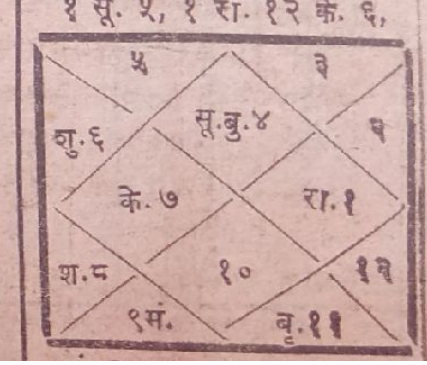 १ सू. ५, १ रा. १२ के. ६,
५ ३
सू.बु.४
शु.६ २
के. ७ रा.१
श.८ १० १२
९मं. बृ.११